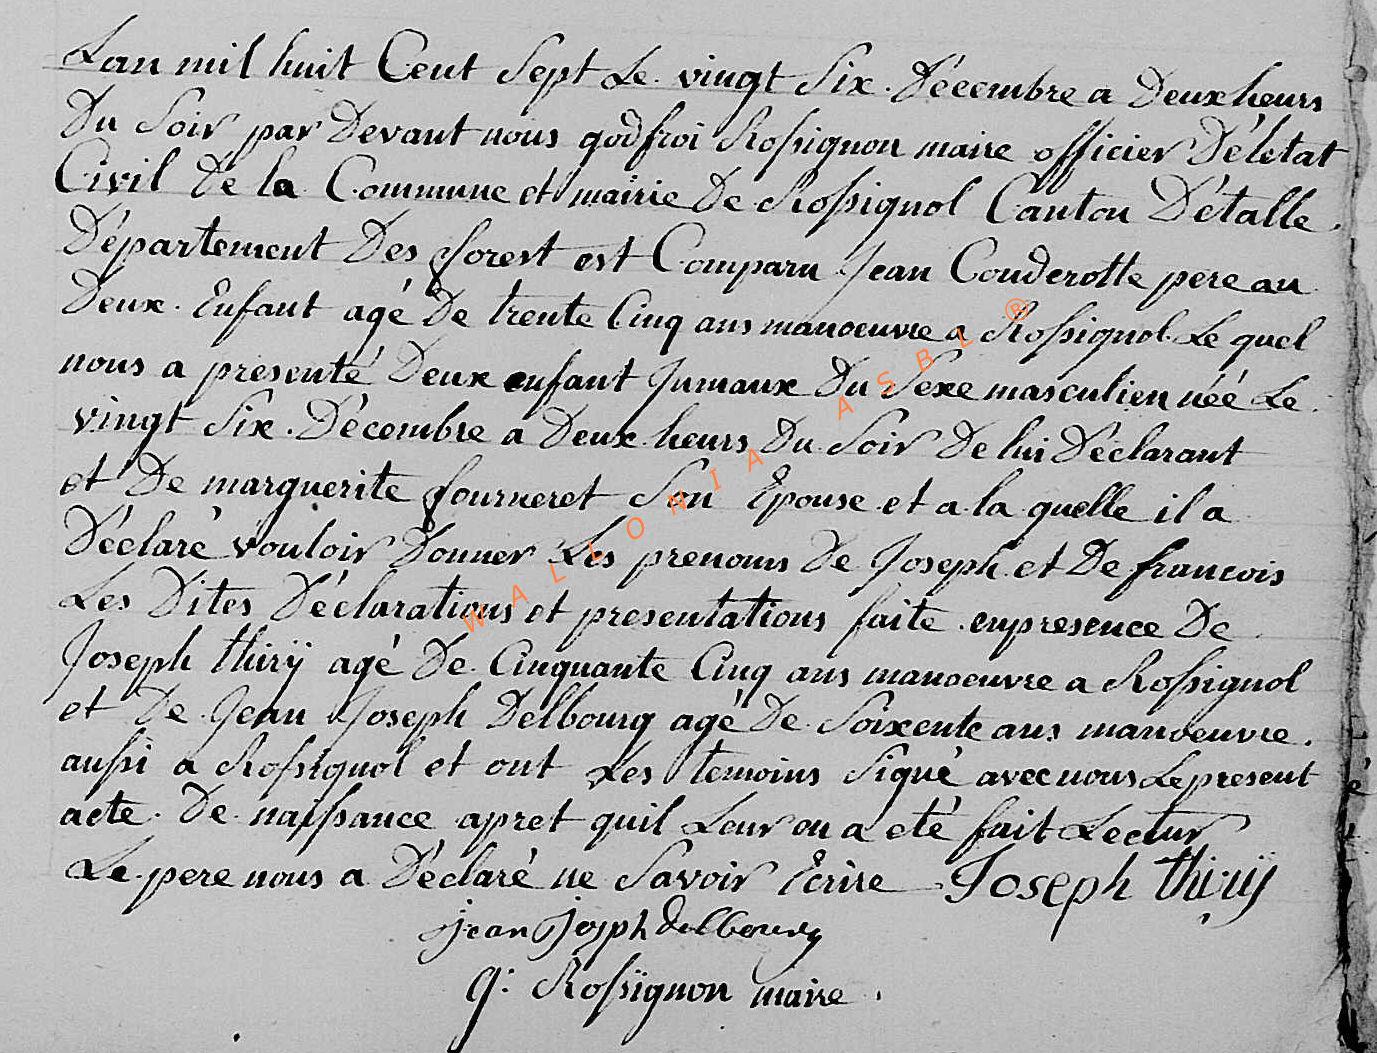 Lan mil huit Cent Sept Le vingt Six Décembre a Deux heurs
Du Soir par Devant nous godfroi Rossignon maire officier Déletat
Civil De la Commune et mairie De Rossignol Canton Détalle
Département Des forest est Comparu Jean Couderotte pere au
Deux Enfant agé De trente Cinq ans manoeuvre a Rossignol Le quel
nous a presenté Deux enfant Jumaux Du Sexe masculien néé Le
vingt Six Décembre a Deux heurs Du Soir De lui Déclarant
et De marguerite fourneret Son Epouse et a la quelle il a
Déclaré vouloir Donner Les prenoms De Joseph et De francois
Les Dites Déclarations et presentations faite enpresence De
Joseph thirÿ agé De Cinquante Cinq ans manoeuvre a Rossignol
et De Jean Joseph Delbourg agé De Soixente ans manoeuvre
aussi a Rossignol et ont Les temoins Signé avec nous Lepresent
acte De naissance apret quil Leur en a eté fait Lectur
Le pere nous a Déclaré ne Savoir Ecrire Joseph thirÿ
jean Josph delbourg
g: Rossignon maire
WALLONIA ASBL ®